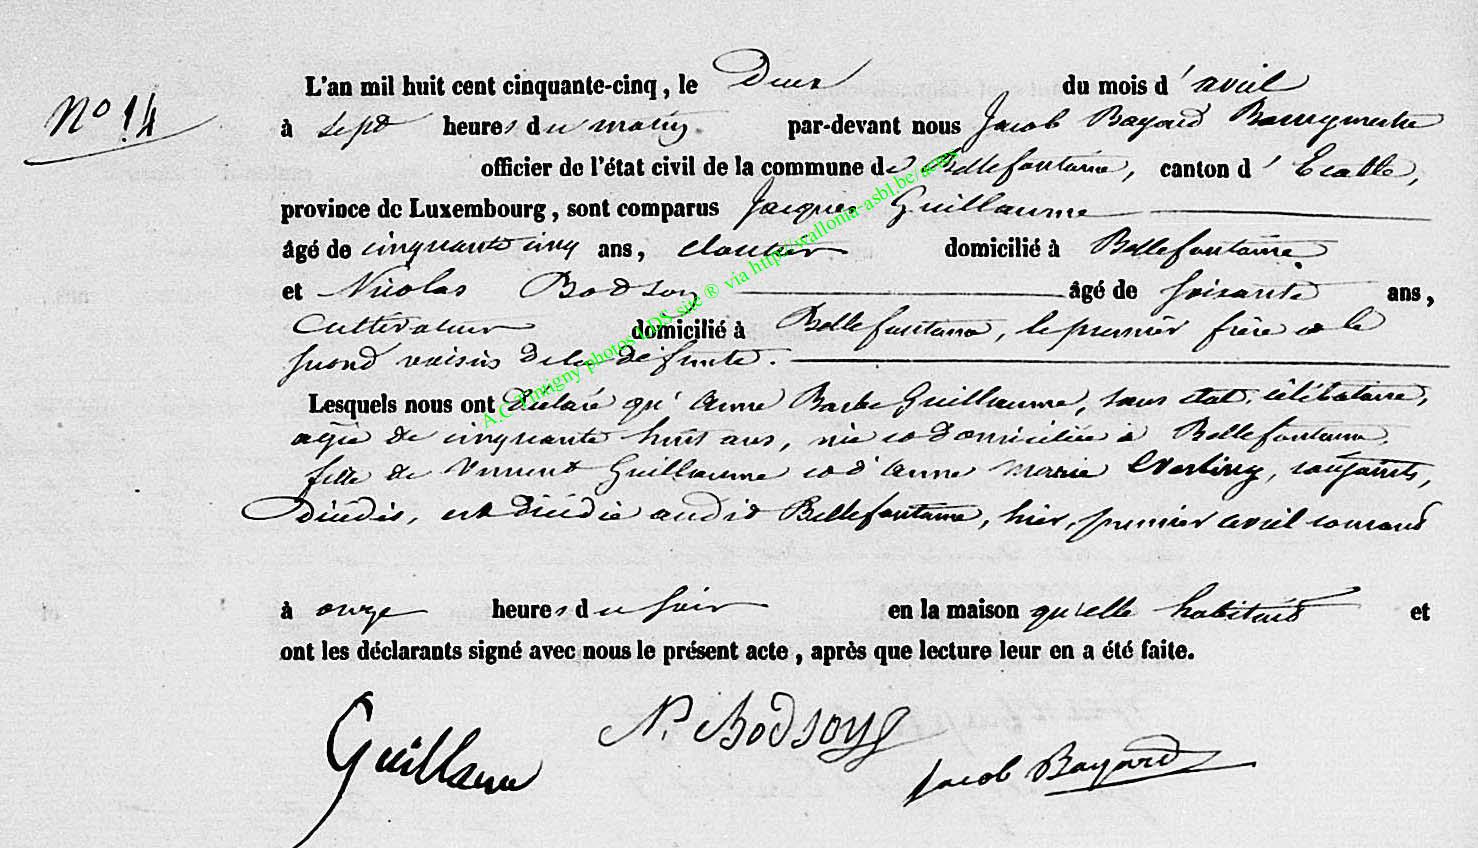 N° 14
L'an mil huit cent cinquante-cinq, le Deux du mois d'avril
à sept heures du matin par-devant nous Jacob Bayard Bourgmestre
officier de l'état civil de la commune de Bellefontaine, canton d'Etalle,
province de Luxembourg, sont comparus Jacques Guillaume
âgé de cinquante cinq ans, cloutier domicilié à Bellefontaine
et Nicolas Bodson âgé de soixante ans,
Cultivateur domicilié à Bellefontaine, le premier frère et le
second voisin de la défunte.
Lesquels nous ont déclaré qu'Anne Barbe Guillaume, sans état, célibataire,
agée de cinquante huit ans, née et domiciliée à Bellefontaine,
fille de Vincent Guillaume et d'Anne Marie conjoints,
Décédés, est décédée audit Bellefontaine, hier, premier avril courant
à onze heures du soir en la maison qu'elle habitait et
ont les déclarants signé avec nous le présent acte, après que lecture leur en a été faite.
Guillaume
N. Bodson
Jacob Bayard
A.C. Tintigny photos LDS site ® via http://wallonia-asbl.be/